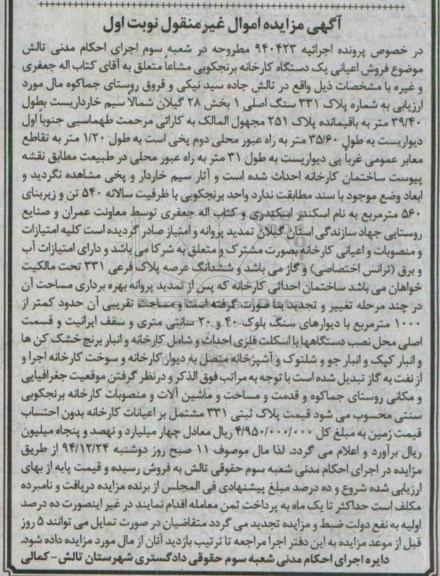 آگهی مزایده اموال غیر منقول نوبت اول
در خصوص پرونده اجرائیه ۹۴۰۴۲۳ مطروحه در شعبه سوم اجرای احکام مدنی تالش
موضوع فروش اعیانی یک دستگاه کارخانه برنجکوبی مشاعاً متعلق به آقای کتاب اله جعفری
و غیره با مشخصات ذیل واقع در تالش جاده سید نیکی و قروق روستای جماکوه مال مورد
ارزیابی به شماره پلاک ۳۳۱ سنگ اصلی ۱ بخش ۲۸ گیلان شمالا سیم خارداریست بطول
۳۹/۴۰ متر به باقیمانده پلاک ۲۵۱ مجهول المالک به کاراتی مرحمت طهماسبی جنوبا اول
دیواریست به طول ۳۵/۶۰ متر به راه عبور محلی دوم پخی است به طول ۱/۲۰ متر به تقاطع
معابر عمومی غرباً پی دیواریست به طول ۳۱ متر به راه عبور محلی در طبیعت مطابق نقشه
پیوست ساختمان کارخانه احداث شده است و آثار سیم خاردار و پخی مشاهده نگردید و
ابعاد وضع موجود با سند مطابقت ندارد واحد برنجکوبی با ظرفیت سالانه ۵۴۰ تن و زیربنای
۵۶۰ مترمربع به نام اسکندر اسکندری و کتاب اله جعفری توسط معاونت عمران و صنایع
روستایی جهاد سازندگی استان گیلان تمدید پروانه و امتیاز صادر گردیده است کلیه امتیازات
و منصوبات و اعیانی کارخانه بصورت مشترک و متعلق به شرکا می باشد و دارای امتیازات آب
و برق (ترانس اختصاصی) و گاز می باشد و ششدانگ عرصه پلاک فرعی ۳۳۱ تحت مالکیت
خواهان می باشد ساختمان احداثی کارخانه که پس از تمدید پروانه بهره برداری مساحت آن
در چند مرحله تغییر و تجدید بنا صورت گرفته است و مساحت تقریبی آن حدود کمتر از
۱۰۰۰ مترمربع با دیوارهای سنگ بلوک ۴۰ و ۲۰ سانتی متری و سقف ایرانیت و قسمت
اصلی محل نصب دستگاهها با اسکلت فلزی احداث و شامل کارخانه و انبار برنج خشک کن ها
و انبار کپک و انبار جو و شلتوک و آشپزخانه متصل به دیوار کارخانه و سوخت کارخانه اجرا و
از نفت به گاز تبدیل شده است با توجه به مراتب فوق الذکر و درنظر گرفتن موقعیت جغرافیایی
و مکانی روستای جماکوه و قدمت و مساحت و ماشین آلات و منصوبات کارخانه برنجکوبی
سنتی محسوب می شود قیمت پلاک ثبتی ۳۳۱ مشتمل بر اعیانات کارخانه بدون احتساب
قیمت زمین به مبلغ کل ۴/۹۵۰/۰۰۰/۰۰۰ ریال معادل چهار میلیارد و نهصد و پنجاه میلیون
ریال برآورد و اعلام می گردد. لذا مال موصوف ۱۱ صبح روز دوشنبه ۹۴/۱۲/۲۴ از طریق
مزایده در اجرای احکام مدنی شعبه سوم حقوقی تالش به فروش رسیده و قیمت پایه از بهای
ارزیابی شده شروع و ده درصد مبلغ پیشنهادی فی المجلس از برنده مزایده دریافت و نامبرده
مکلف است حداکثر تا یک ماه به پرداخت ثمن معامله اقدام نمایند در غیر اینصورت ده درصد
اولیه به نفع دولت ضبط و مزایده تجدید می گردد متقاضیان در صورت تمایل می توانند ۵ روز
قبل از موعد مزایده به این دفتر اجرا مراجعه تا ترتیب بازدید آنان از مال مورد مزایده داده شود.
دایره اجرای احکام مدنی شعبه سوم حقوقی دادگستری شهرستان تالش - کمالی